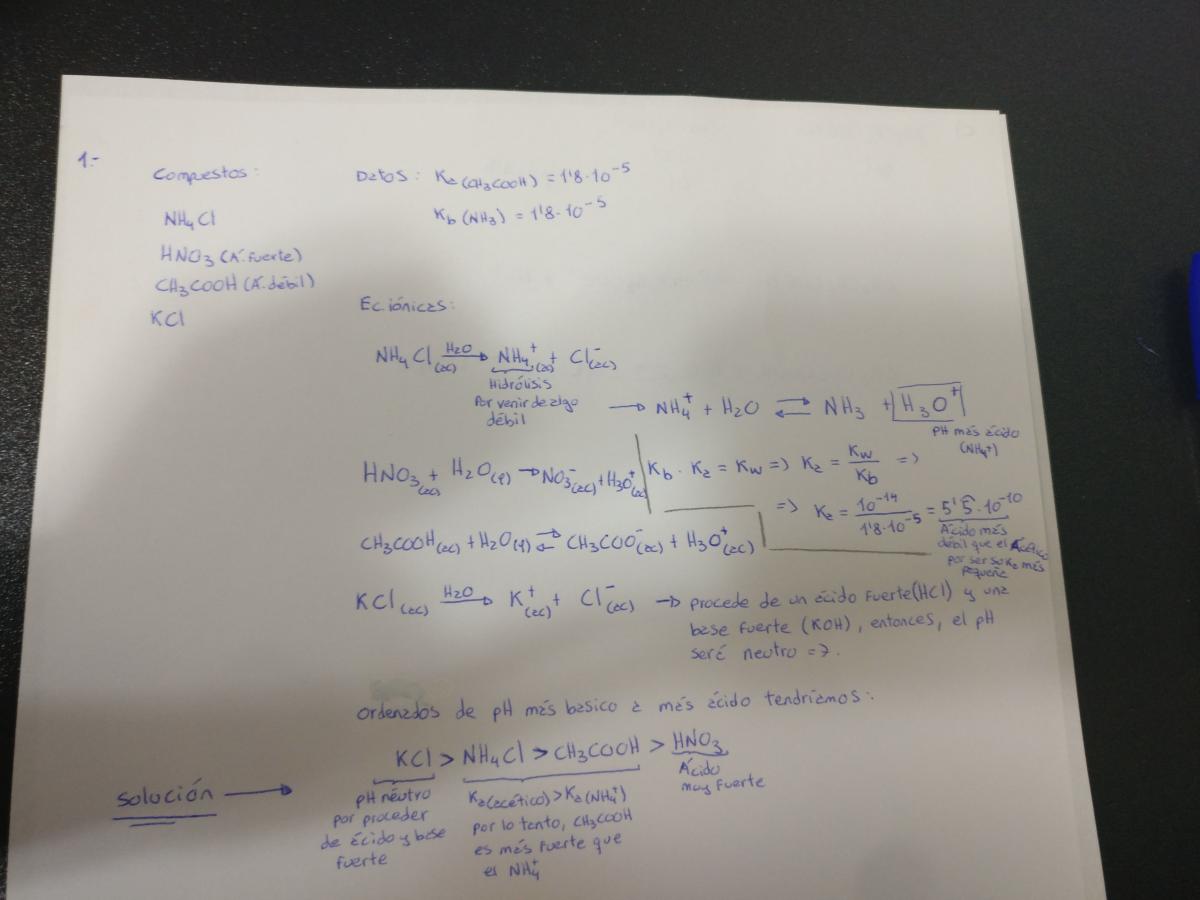 1.-
Compuestos:
NH4Cl
HNO3 (Á. fuerte)
CH3COOH (Á. débil)
KCl
Datos: Ka (CH3COOH) = 1'8·10^-5
Kb (NH3) = 1'8·10^-5
Ec. iónicas:
NH4Cl(ac) —H2O→ NH4+(ac) + Cl-(ac)
Hidrólisis
Por venir de algo
débil
→ NH4+ + H2O ⇌ NH3 + H3O+
pH más ácido
(NH4+)
HNO3(ac) + H2O(l) → NO3-(ac) + H3O+(ac)
Kb · Ka = Kw => Ka = Kw/Kb =>
=> Ka = 10^-14/1'8·10^-5 = 5'5·10^-10
Ácido más
débil que el Acético
por ser su Ka más
pequeña
CH3COOH(ac) + H2O(l) ⇌ CH3COO-(ac) + H3O+(ac)
KCl(ac) —H2O→ K+(ac) + Cl-(ac) → procede de un ácido fuerte (HCl) y una
base fuerte (KOH), entonces, el pH
será neutro = 7.
Ordenados de pH más basico a más ácido tendríamos:
solución → KCl > NH4Cl > CH3COOH > HNO3
pH néutro
por proceder
de ácido y base
fuerte
Ka(acético) > Ka(NH4+)
por lo tanto, CH3COOH
es más fuerte que
el NH4+
Ácido
muy fuerte